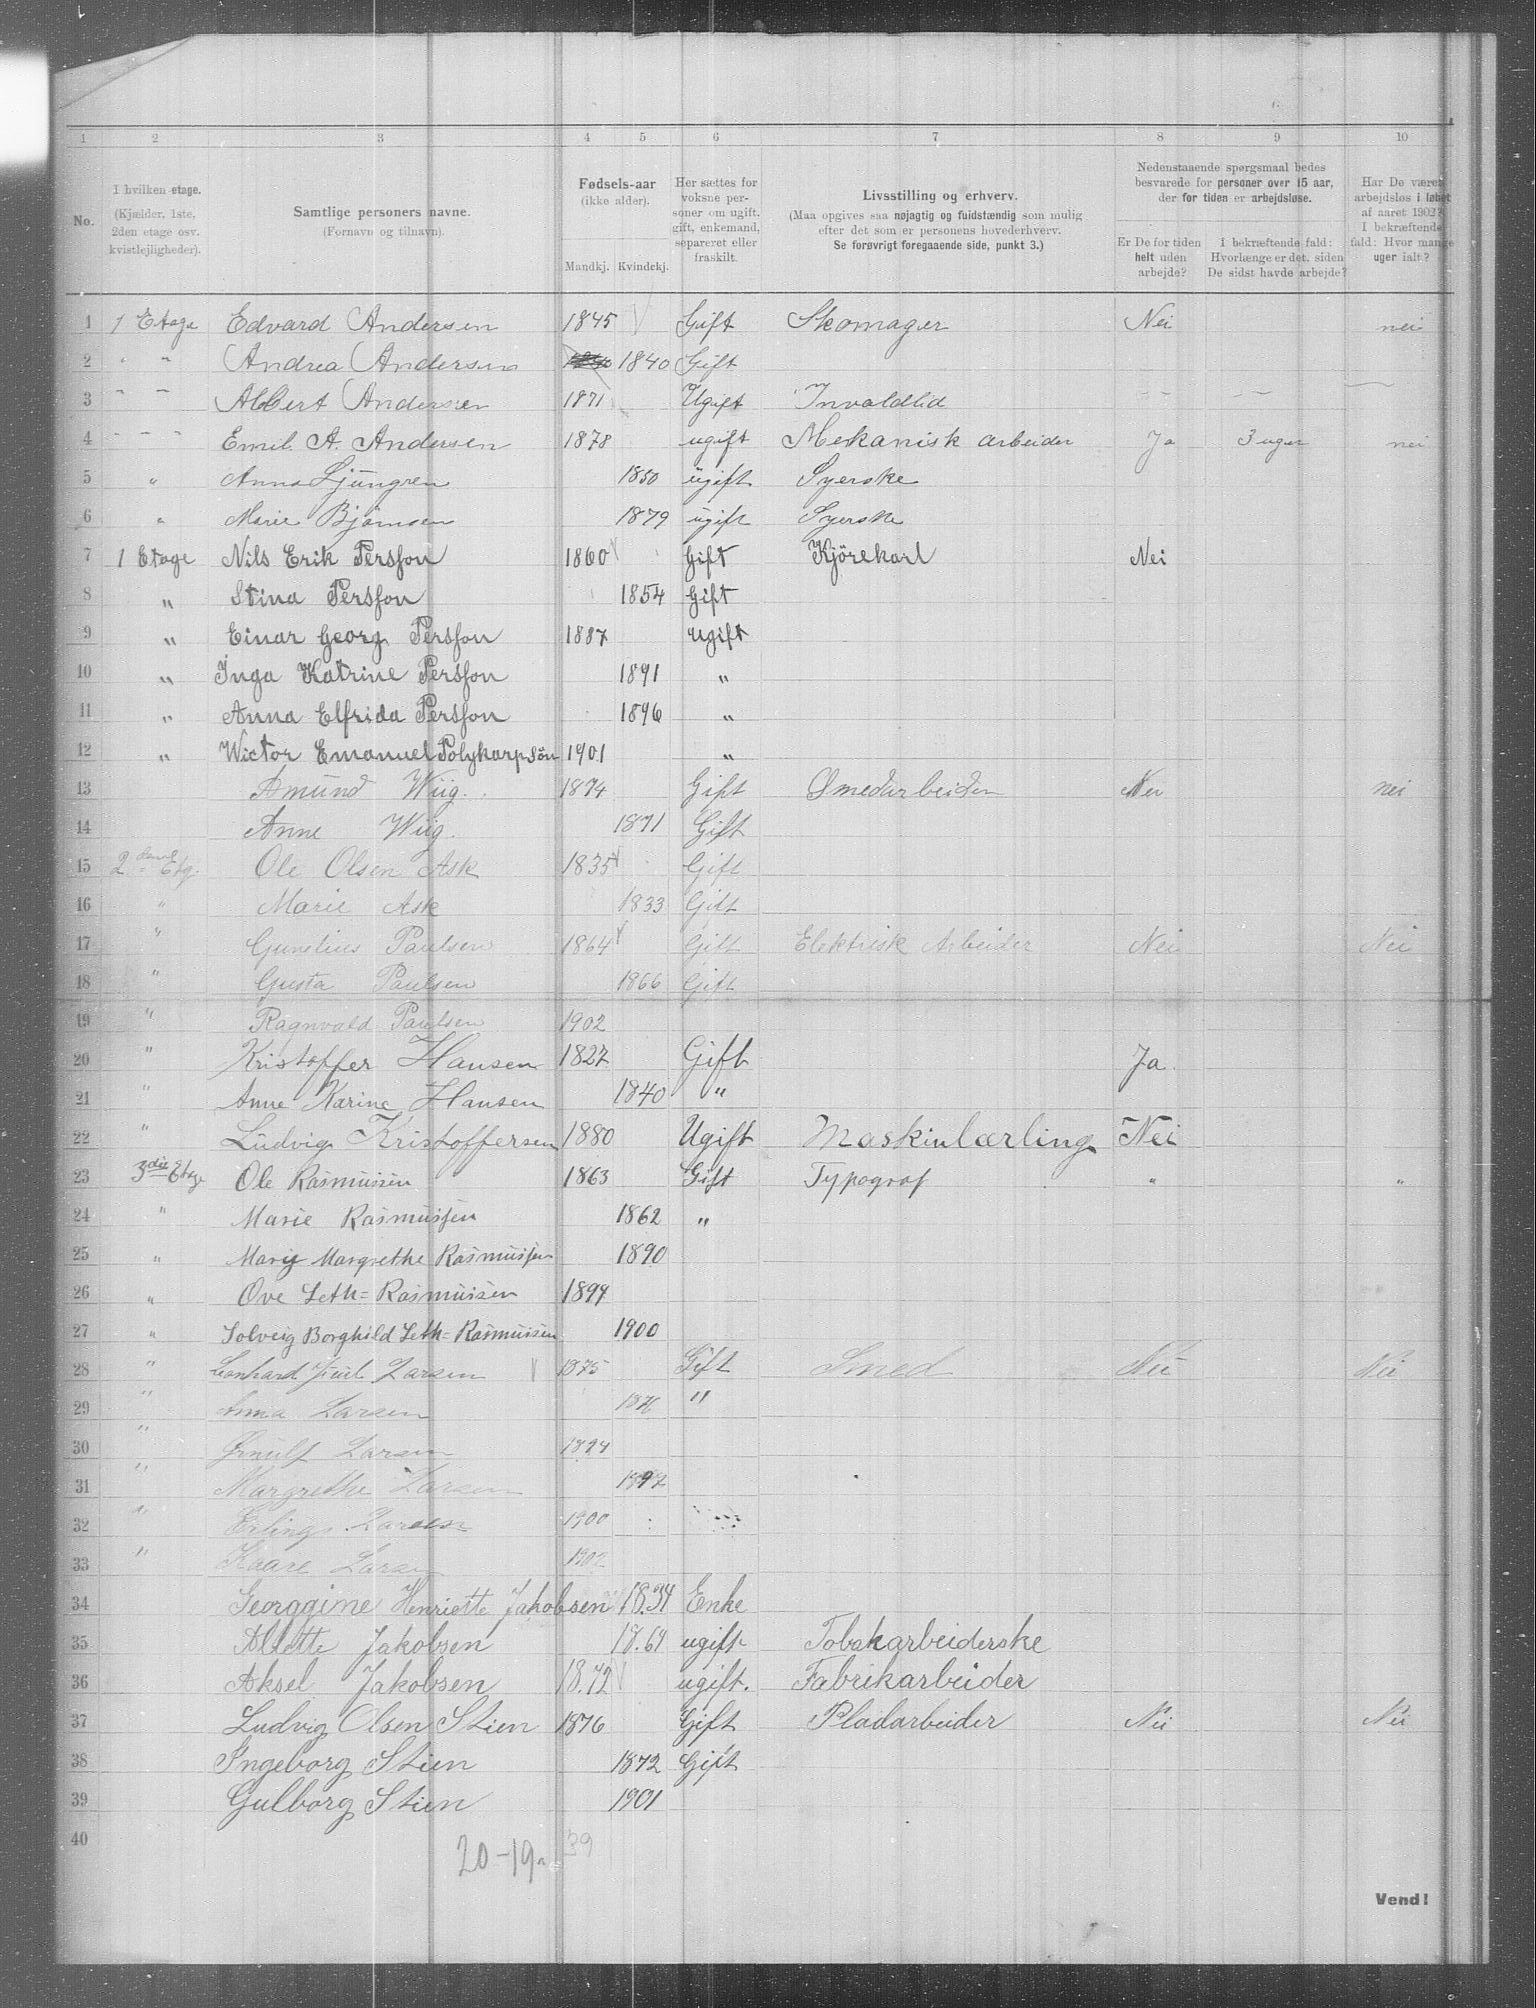 1 2 3 4 5 6 7 8 9 10
No.
I hvilken etage.
(Kjælder, 1ste,
2den etage osv.
kvistlejligheder).
Samtlige personers navne.
(Fornavn og tilnavn).
Fødsels-aar
(ikke alder).
Mandkj. Kvindekj.
Her sættes for
voksne per-
soner om ugift,
gift, enkemand,
separeret eller
fraskilt.
Livsstilling og erhverv.
(Maa opgives saa nøjagtig og fuldstændig som mulig
efter det som er personens hovederhverv.
Se forøvrigt foregaaende side, punkt 3.)
Nedenstaaende spørgsmaal bedes
besvarede for personer over 15 aar,
der for tiden er arbejdsløse.
Er De for tiden
helt uden
arbejde?
I bekræftende fald:
Hvorlænge er det, siden
De sidst havde arbejde?
Har De været
arbejdsløs i løbet
af aaret 1902?
I bekræftende
fald: Hvor mange
uger ialt?
1 1 Etage Edvard Andersen 1845 Gift Skomager Nei nei
2 " " Andrea Andersen 1840 Gift
3 " " Albert Andersen 1871 Ugift Invaldlid
4 " " " Emil A. Andersen 1878 ugift Mekanisk arbeider Ja 3 uger nei
5 " Anna Ljungren 1850 ugift Syerske
6 " Marie Bjørnsen 1879 ugift Syerske
7 1 Etage Nils Erik Persson 1860 Gift Kjörekarl Nei
8 " Stina Persson 1854 Gift
9 " Einar Georg Persson 1887 ugift
10 " Inga Katrine Persson 1891 "
11 " Anna Elfrida Persson 1896 "
12 " Wictor Emanuel Polykarpsön 1901 "
13 Amund Wiig. 1874 Gift Smedarbeider Nei nei
14 Anne Wiig. 1871 Gift
15 2den Etg. Ole Olsen Ask 1835 Gift
16 " Marie Ask 1833 Gift
17 " Gunelius Paulsen 1864 Gift Elektrisk Arbeider Nei Nei
18 " Gusta Paulsen 1866 Gift
19 " Ragnvald Paulsen 1902
20 " Kristoffer Hansen 1827 Gift Ja.
21 " Anne Karine Hansen 1840 "
22 " Ludvig Kristoffersen 1880 Ugift Maskinlærling Nei
23 3die Etage Ole Rasmussen 1863 Gift Typograf " "
24 " Marie Rasmussen 1862 "
25 " Marie Margrethe Rasmussen 1890
26 " Ove Leth=Rasmussen 1899
27 " Solveig Borghild Leth=Rasmussen 1900
28 " Leonhard Juul Larsen 1875 Gift Smed Nei Nei
29 " Anna Larsen 1876 "
30 " Arnulf Larsen
31 " Margrethe Larsen 1897
32 " Erling Larsen 1900
33 " Kaare Larsen 1902
34 Georggine Henriette Jakobsen 18.34 Enke
35 Alette Jakobsen 18.64 ugift Tobakarbeiderske
36 Aksel Jakobsen 18.72 ugift. Fabrikarbeider
37 Ludvig Olsen Stien 1876 Gift Pladarbeider Nei Nei
38 Ingeborg Stien 1872 Gift
39 Gulborg Stien 1901
40
20-19 39
Vend!